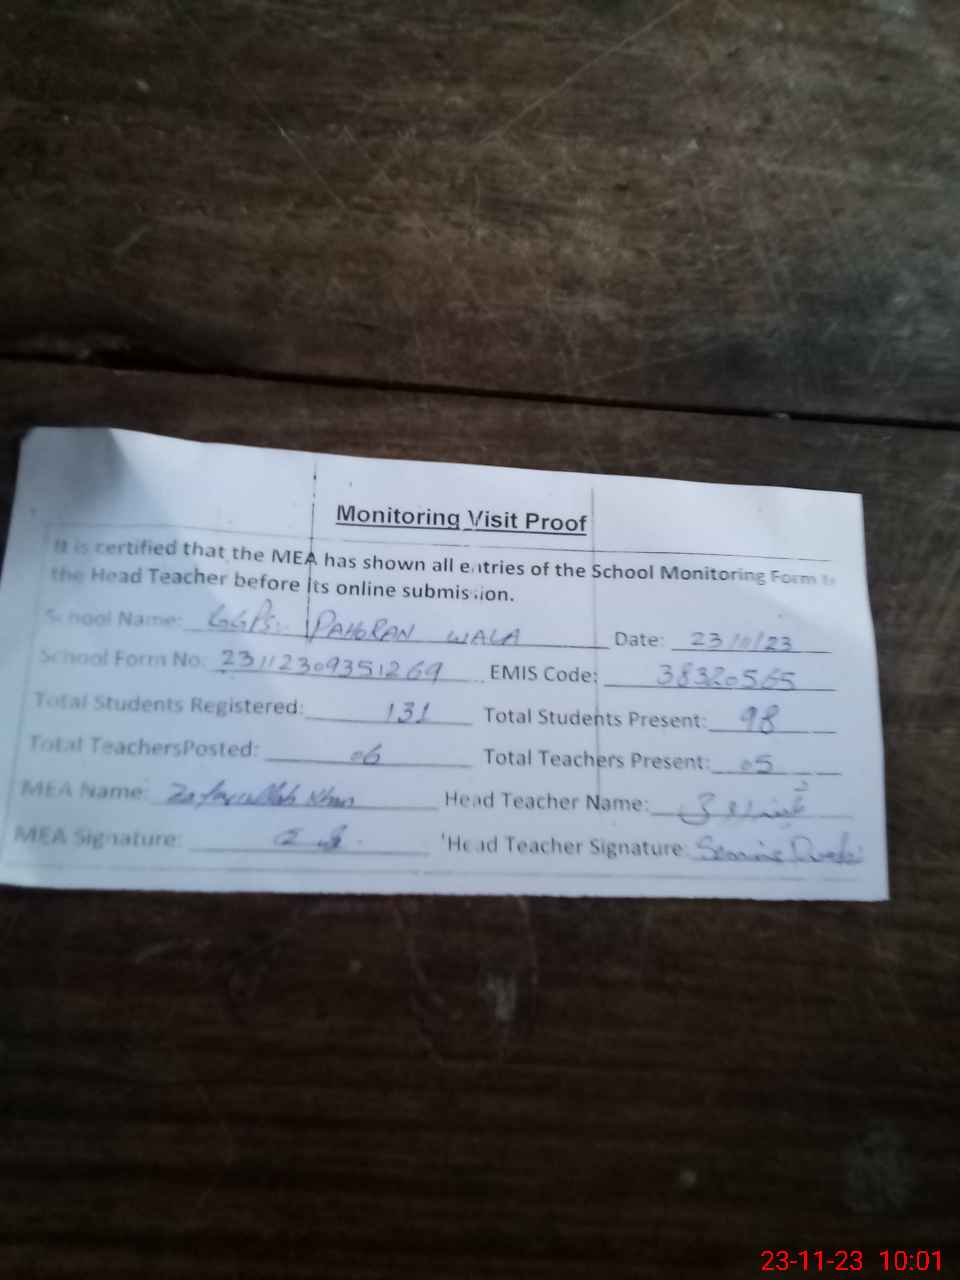 Monitoring Visit Proof
It is certified that the MEA has shown all entries of the School Monitoring Form to
the Head Teacher before its online submission.
School Name: GGPS. PAHORAN WALA Date: 23/11/23
School Form No: 23112309351269 EMIS Code: 38320565
Total Students Registered: 131 Total Students Present: 98
Total TeachersPosted: 06 Total Teachers Present: 05
MEA Name: Zafarullah Khan Head Teacher Name:
MEA Signature: Head Teacher Signature:
23-11-23 10:01